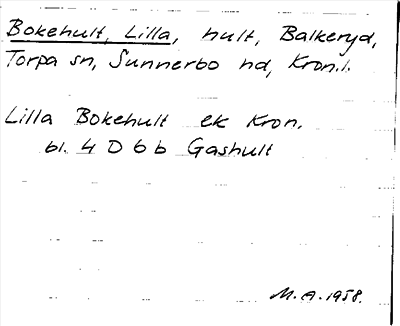 Bokehult, Lilla, hult, Balkeryd,
Torpa sn, Sunnerbo hd, Kron.l.
Lilla Bokehult ek Kron.
bl. 4 D 6 b Gashult
M.A. 1958.